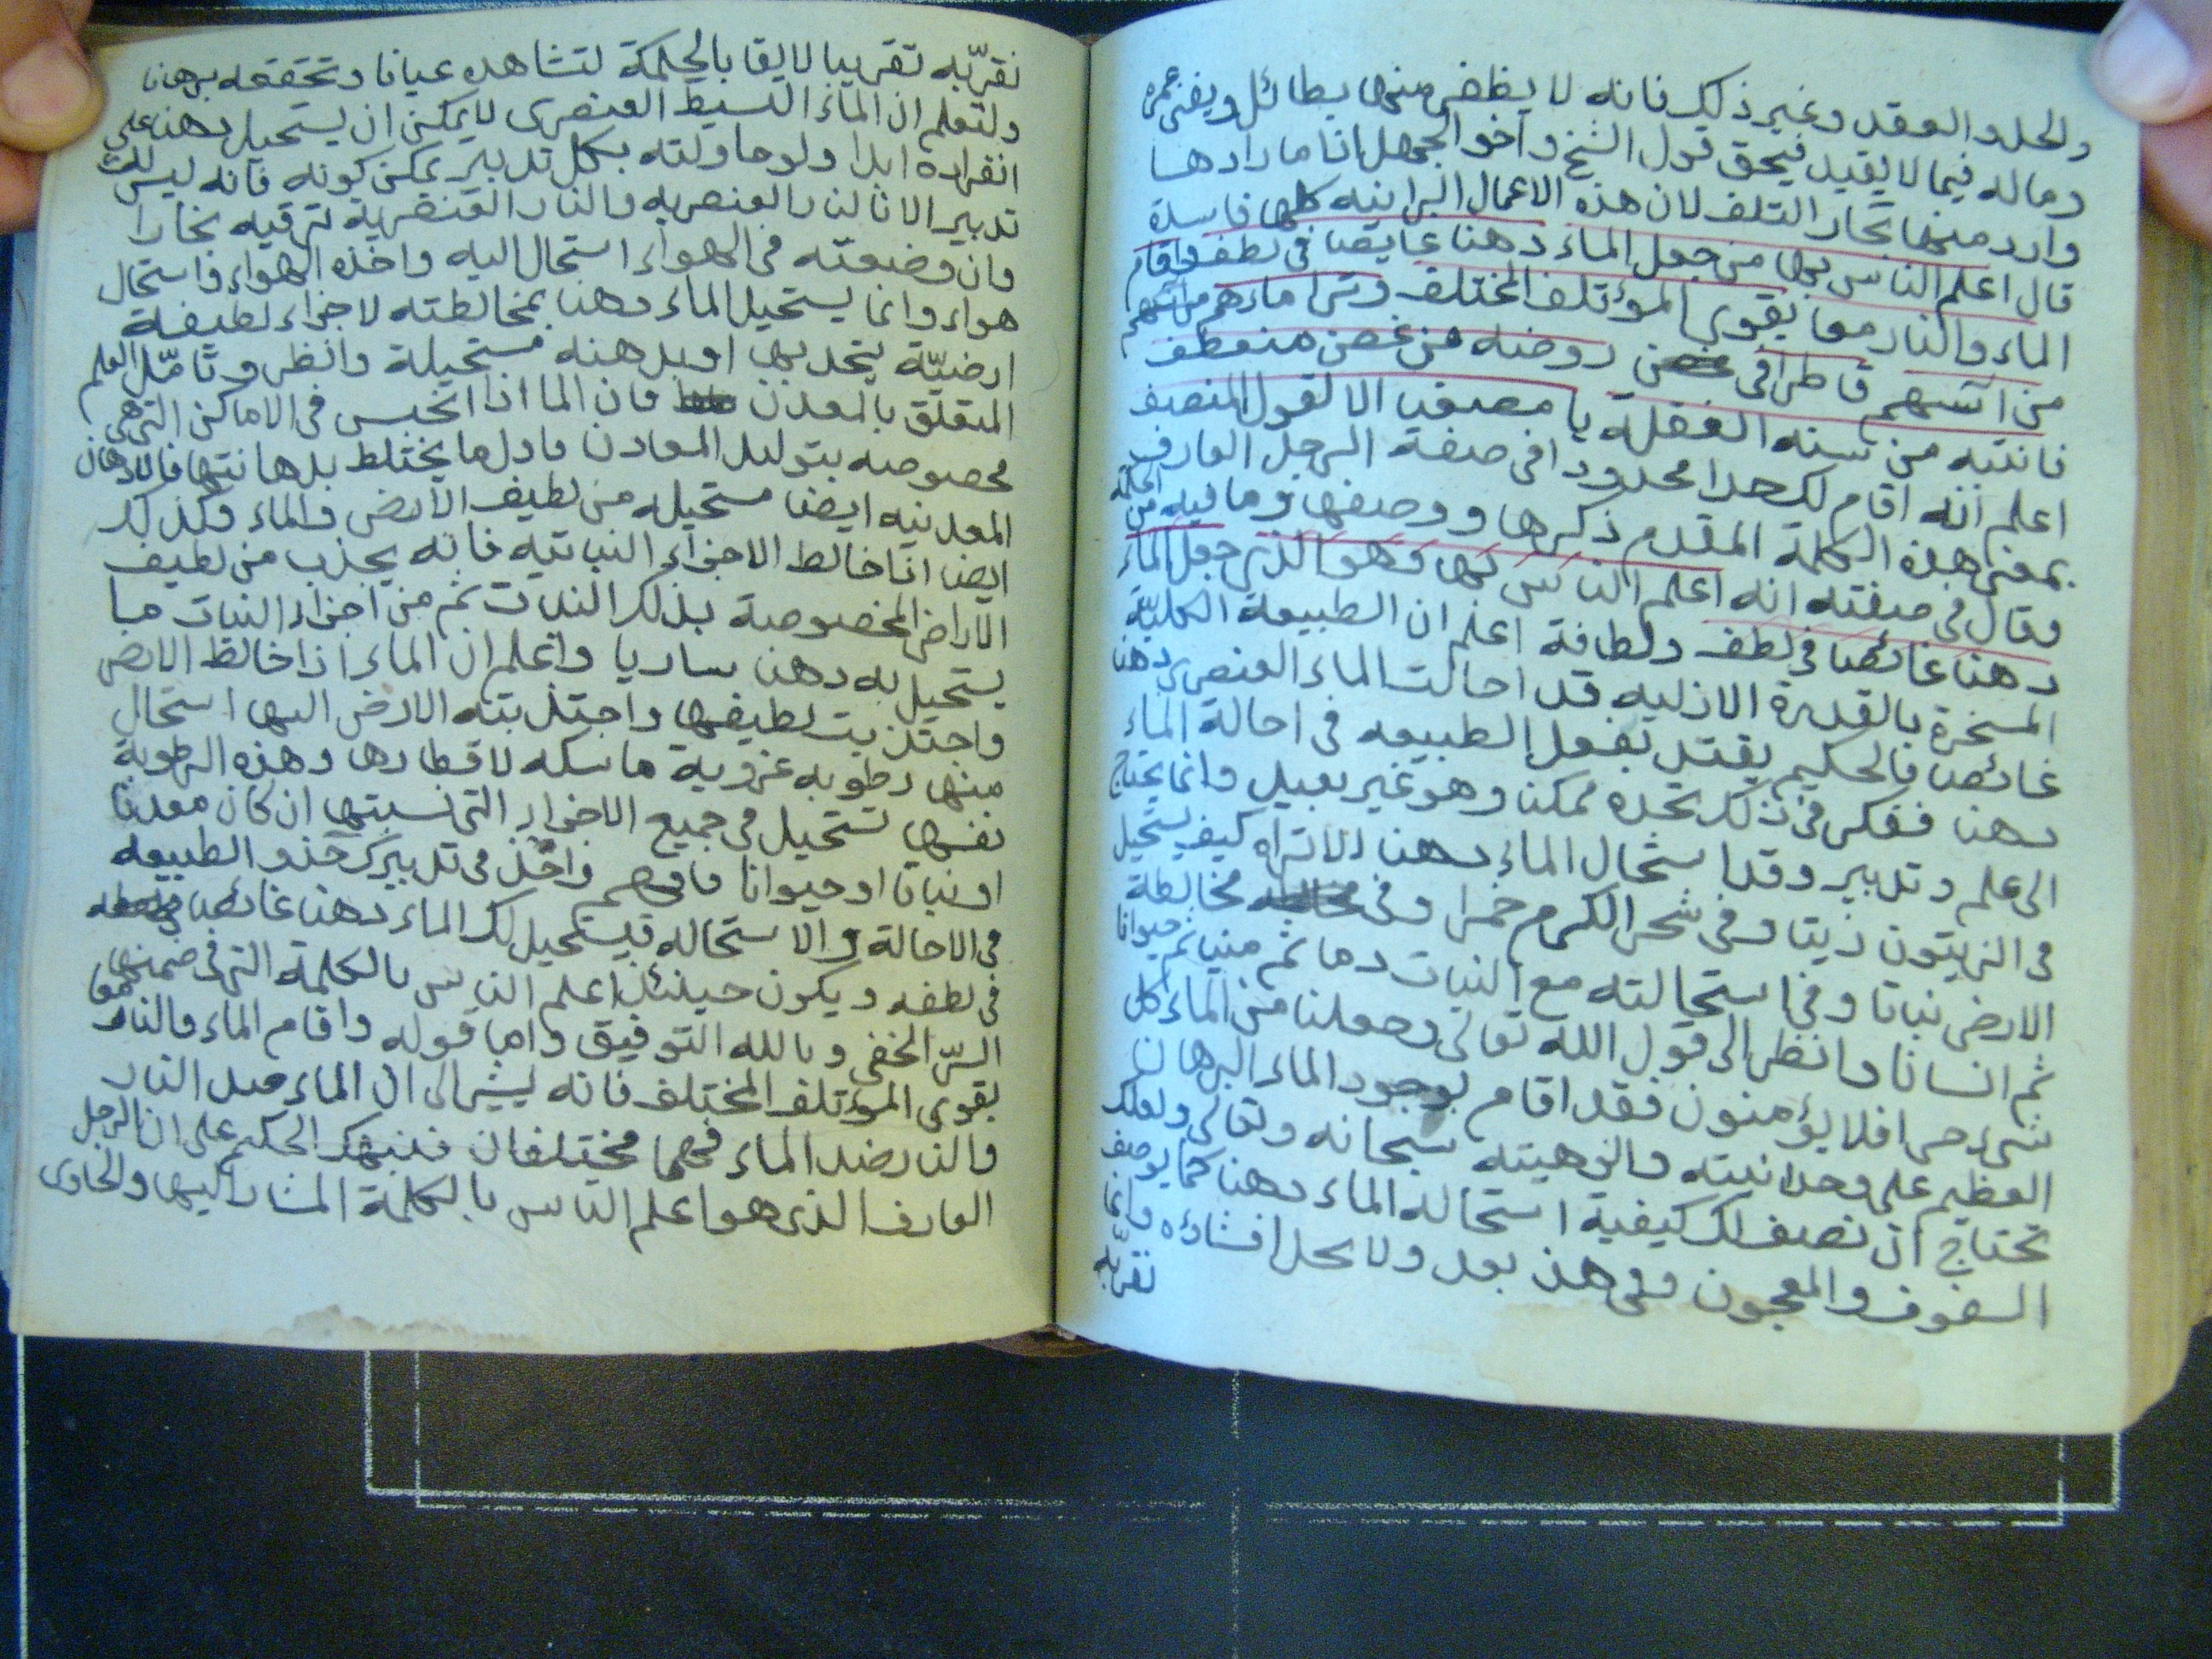 ولحل والعقد وغير ذلك فانه لا يظفر منها بطائل ويفنى عمره
وماله فيما لا يفيد فيحق قول الشيخ واخو الجهل اذا ما رادها
وارد منها بحار التلف لان هذه الاعمال البرانيه كلها فاسدة
قال اعلم الناس بها من جعل الماء دهنا غايصا في لطف واقام
الماء والنار معا بقوى المؤتلف المختلف وترا ماءهم من
من آسهم قاطرا في روضه من غصن منعطف
فانتبه من سنه الغفلة يا مصيف الا لقول المنصف
اعلم انه اقام لك حدا محدودا في صفة الرجل العارف
بمعنى هذه الكلمة المقدم ذكرها ووصفها وما فيه من
وقال في صفته انه اعلم الناس بها وهو الذي جعل الماء
دهنا غائصا في لطف ولطافة اعلم ان الطبيعة الكليّة
المسخرة بالقدرة الازليه قد احالت الماء العنصري دهنا
غائصا فالحكيم يقتد بفعل الطبيعه في احالة الماء
دهنا ففكر في ذلك تجده ممكنا وهو غير بعيد وانما يحتاج
الى علم وتدبير وقد استحال الماء دهنا الا تراه كيف يستحيل
في الزيتون زيتا وفي شجر الكرم خمرا وفي مخالطة
الارض نباتا وفي استحالته مع النبات دما ثم منيا ثم حيوانا
ثم انسانا وانظر الى قول الله تعالى وجعلنا من الماء كل
شيء حي افلا يؤمنون فقد اقام بوجود الماء البرهان
العظيم على وحدانيته والوهيته سبحانه وتعالى ولعلك
تحتاج ان نصف لك كيفية استحاله الماء دهنا كما يوصف
السفوف والمعجون وفي هذا بعد ولا يحل افشاؤه وانما
نقرّبه
نقرّبه تقريبا لايقا بالحكمة لتشاهده عيانا وتحققه برهانا
ولتعلم ان الماء البسيط العنصرى لا يمكن ان يستحيل دهنا على
انفراده ابدا ولو حاولته بكل تدبير يمكن كونه فانه ليس لك
تدبير الا بالنار العنصريه والنار العنصرية ترقيه بخارا
وان وضعته في الهواء استحال اليه واخذه الهواء واستحال
هواء وانما يستحيل الماء دهنا بمخالطته لاجزاء لطيفة
ارضيّة يتحد بها او بدهنه مستحيلة وانظر وتأمّل العلم
المتعلق بالمعدن فان الما اذا انحبس في الاماكن التي هي
مخصوصه بتوليد المعادن فاول ما يختلط بدهانتها فالادهان
المعدنيه ايضا مستحيله من لطيف الارض والماء وكذلك
ايضا اذا خالط الاجزاء النباتيه فانه يجذب من لطيف
الاراض المخصوصة بذلك النبات ثم من اجزاء النبات ما
يستحيل به دهنا ساريا واعلم ان الماء اذا خالط الارض
واجتذبت لطيفها واجتذبته الارض اليها استحال
منها رطوبه غروية ماسكه لاقطارها وهذه الرطوبة
نفسها تستحيل في جميع الاجزاء التي نسبتها ان كان معدنا
او نباتا او حيوانا فافهم واحذ في تدبيرك حذو الطبيعه
في الاحالة والاستحاله فيستحيل لك الماء دهنا غائصا
في لطفه ويكون حينئذ اعلم الناس بالكلمة التي في ضمنها
السرّ الخفي وبالله التوفيق واما قوله واقام الماء والنار معا
بقوى المؤتلف المختلف فانه يشير الى ان الماء ضد النار
والنار ضد الماء فهما مختلفان فنبهك الحكيم على ان الرجل
العارف الذي هو اعلم الناس بالكلمة المشار اليها والحاوى